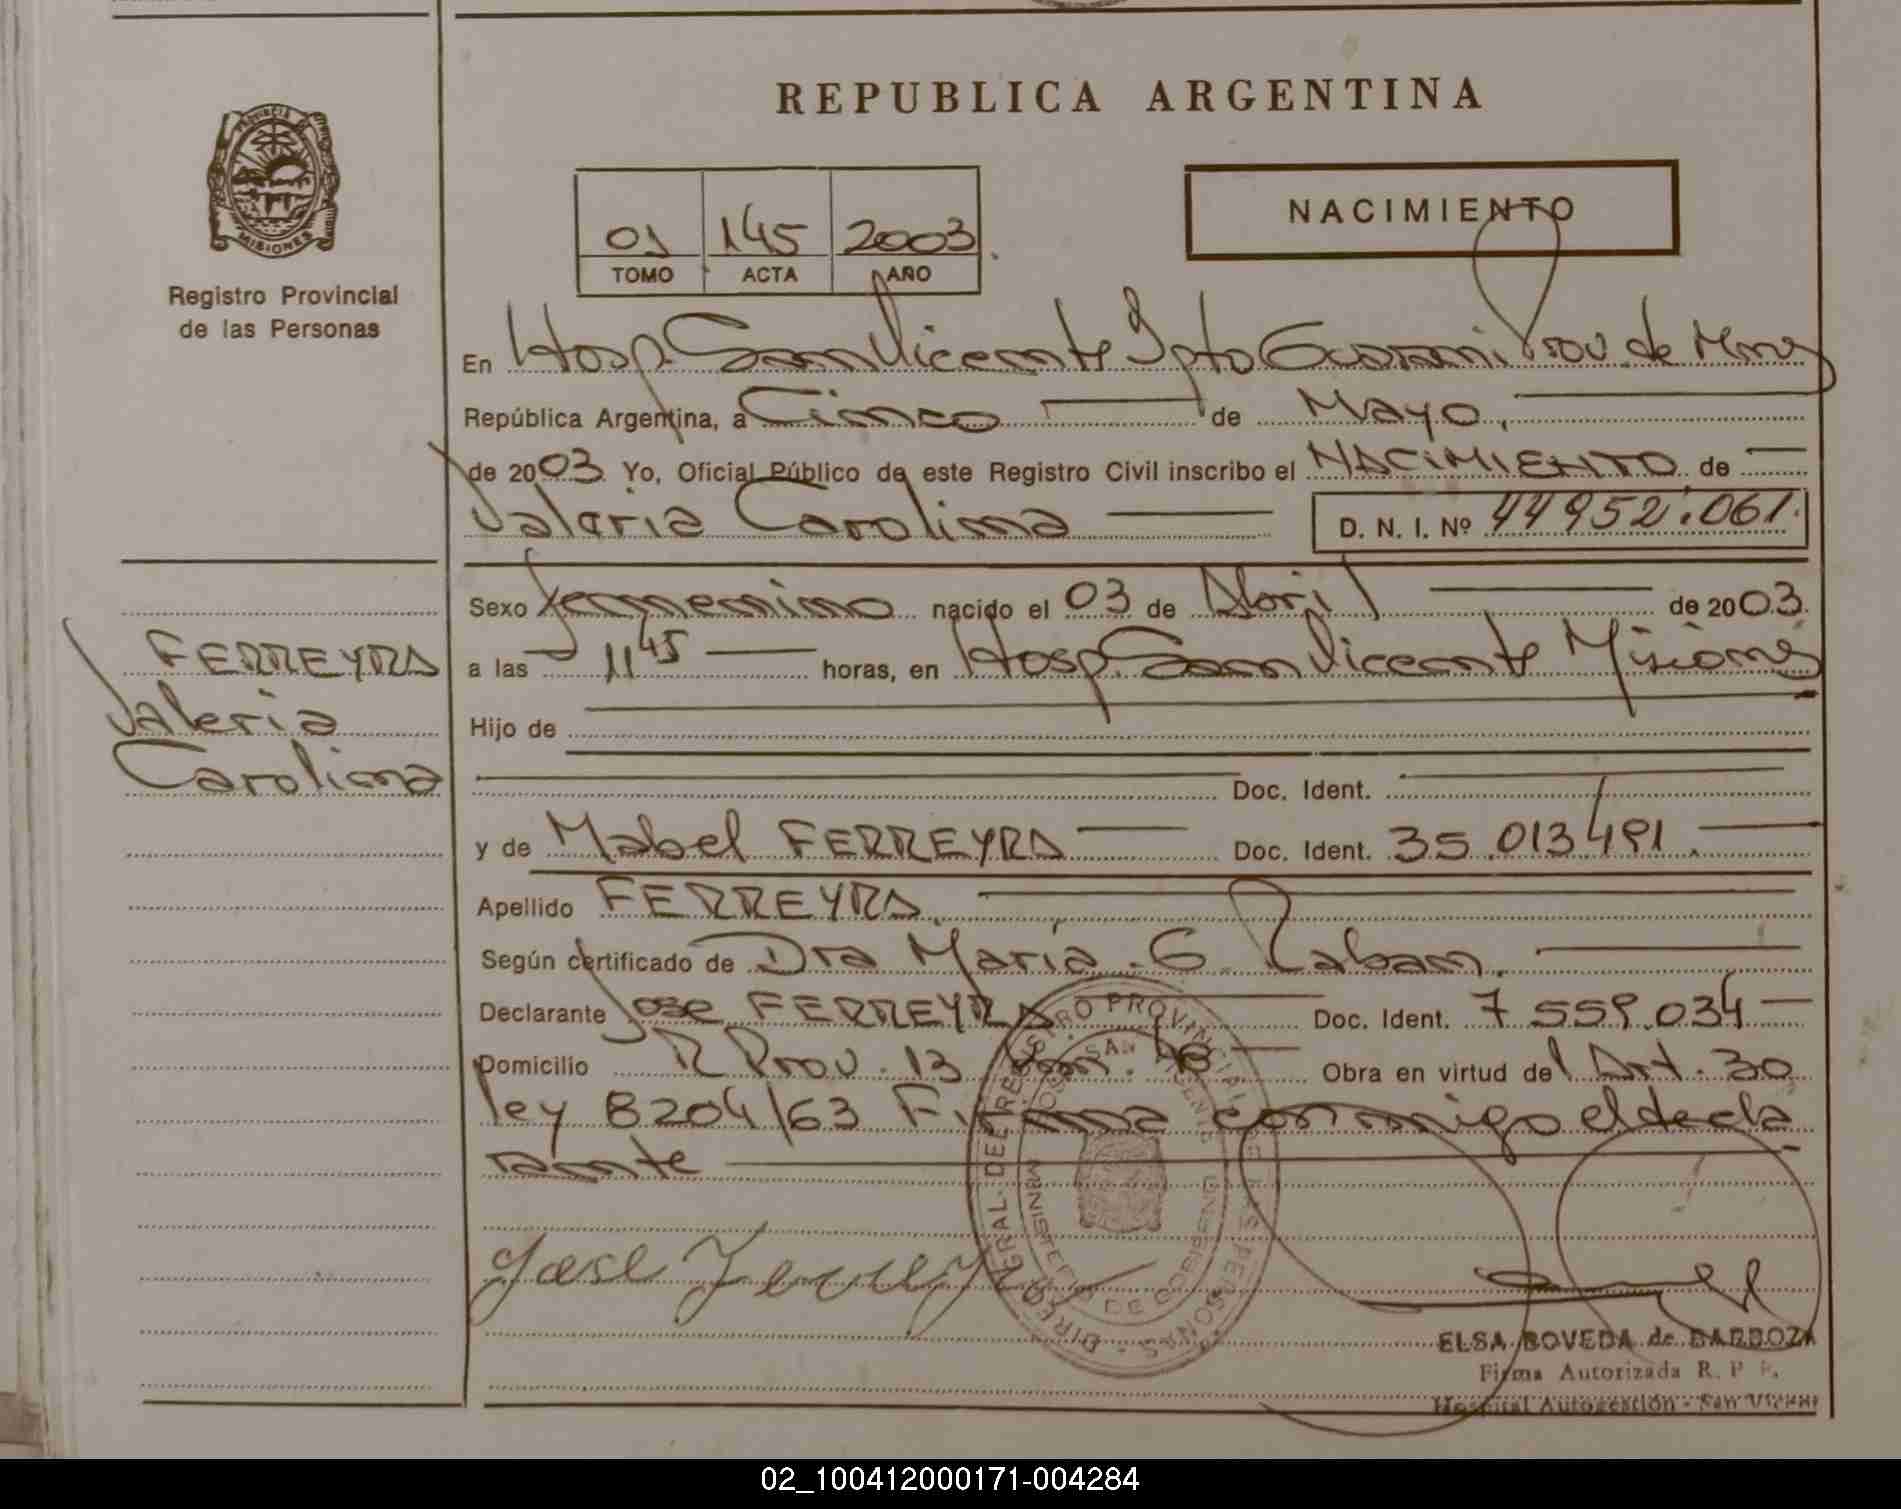 REPUBLICA ARGENTINA
PROVINCIA DE
MISIONES
Registro Provincial
de las Personas
01 145 2003
TOMO ACTA AÑO
NACIMIENTO
En Hosp. San Vicente Dpto Guarani Prov. de Mnes
República Argentina, a Cinco de Mayo
de 2003 Yo, Oficial Público de este Registro Civil inscribo el NACIMIENTO de
Valeria Carolina D. N. I. Nº 44952.061.
FERREYRA
Valeria
Carolina
Sexo femenino nacido el 03 de Abril de 2003.
a las 11 45 horas, en Hosp. San Vicente Misiones
Hijo de
Doc. Ident.
y de Mabel FERREYRA Doc. Ident. 35.013491.
Apellido FERREYRA.
Según certificado de Dra Maria. G.
Declarante Jose FERREYRA Doc. Ident. 7 559.034
Domicilio R Prov. 13 Km. Obra en virtud del Art. 30
ley 8204/63 Firma conmigo el decla
rante
Jose Ferreyra
DIRECCION GENERAL DE REGISTRO PROVINCIAL DE LAS PERSONAS
MINISTERIO DE GOBIERNO
ELSA BOVEDA de BARBOZA
Firma Autorizada R. P. P.
Hospital Autogestión - San Vicente
02_100412000171-004284